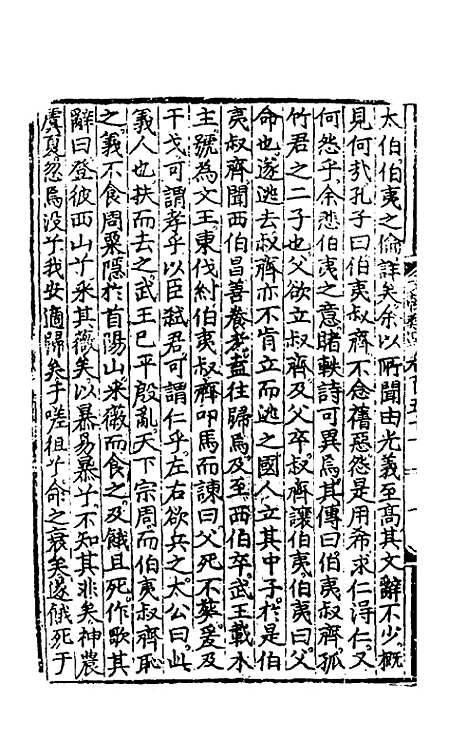 太伯伯夷之倫詳矣余以所聞由光義至髙其文辭不少概
見何㢤孔子曰伯夷叔齊不念舊惡怨是用希求仁得仁又
何怨乎余悲伯夷之意睹軼詩可異焉其傳曰伯夷叔齊孤
竹君之二子也父欲立叔齊及父卒叔齊讓伯夷伯夷曰父
命也遂逃去叔齊亦不肯立而逃之國人立其中子於是伯
夷叔齊聞西伯昌善養老盍往歸焉及至西伯卒武王載木
主號為文王東伐紂伯夷叔齊叩馬而諫曰父死不葬爰及
干戈可謂孝乎以臣弑君可謂仁乎左右欲兵之太公曰此
義人也扶而去之武王已平殷亂天下宗周而伯夷叔齊恥
之義不食周粟隱於首陽山采薇而食之及餓且死作歌其
辭曰登彼西山兮采其薇矣以暴易暴兮不知其非矣神農
虞夏忽焉没兮我安適歸矣于嗟徂兮命之衰矣遂餓死于